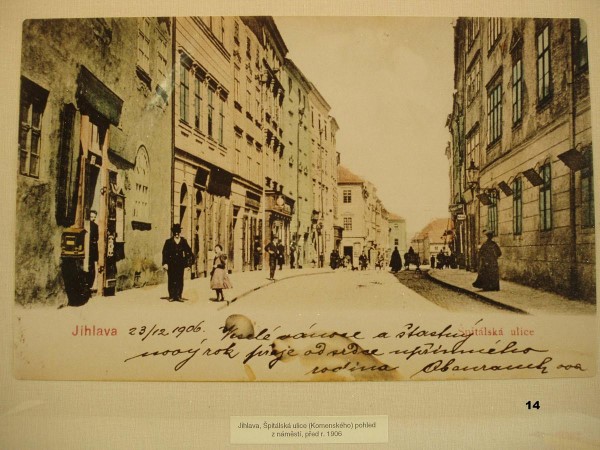 Jihlava
Špitálská ulice
23/12 1906. Veselé vánoce a šťastný
nový rok přeje od srdce upřímného
rodina
14
Jihlava, Špitálská ulice (Komenského) pohled
z náměstí, před r. 1906